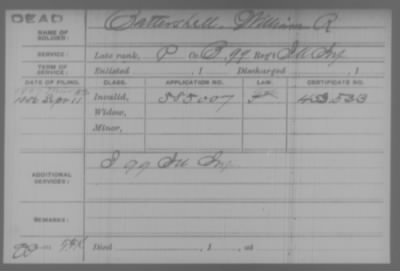 DEAD
NAME OF SOLDIER: Battershell, William R
SERVICE: Late rank, P Co. B, 99 Reg't Ill Inf
TERM OF SERVICE: Enlisted , 1 Discharged , 1
DATE OF FILING. CLASS. APPLICATION NO. LAW. CERTIFICATE NO.
Invalid, 585007 453533
Widow,
Minor,
ADDITIONAL SERVICES: 99 Ill Inf
REMARKS:
Died , 1 , at